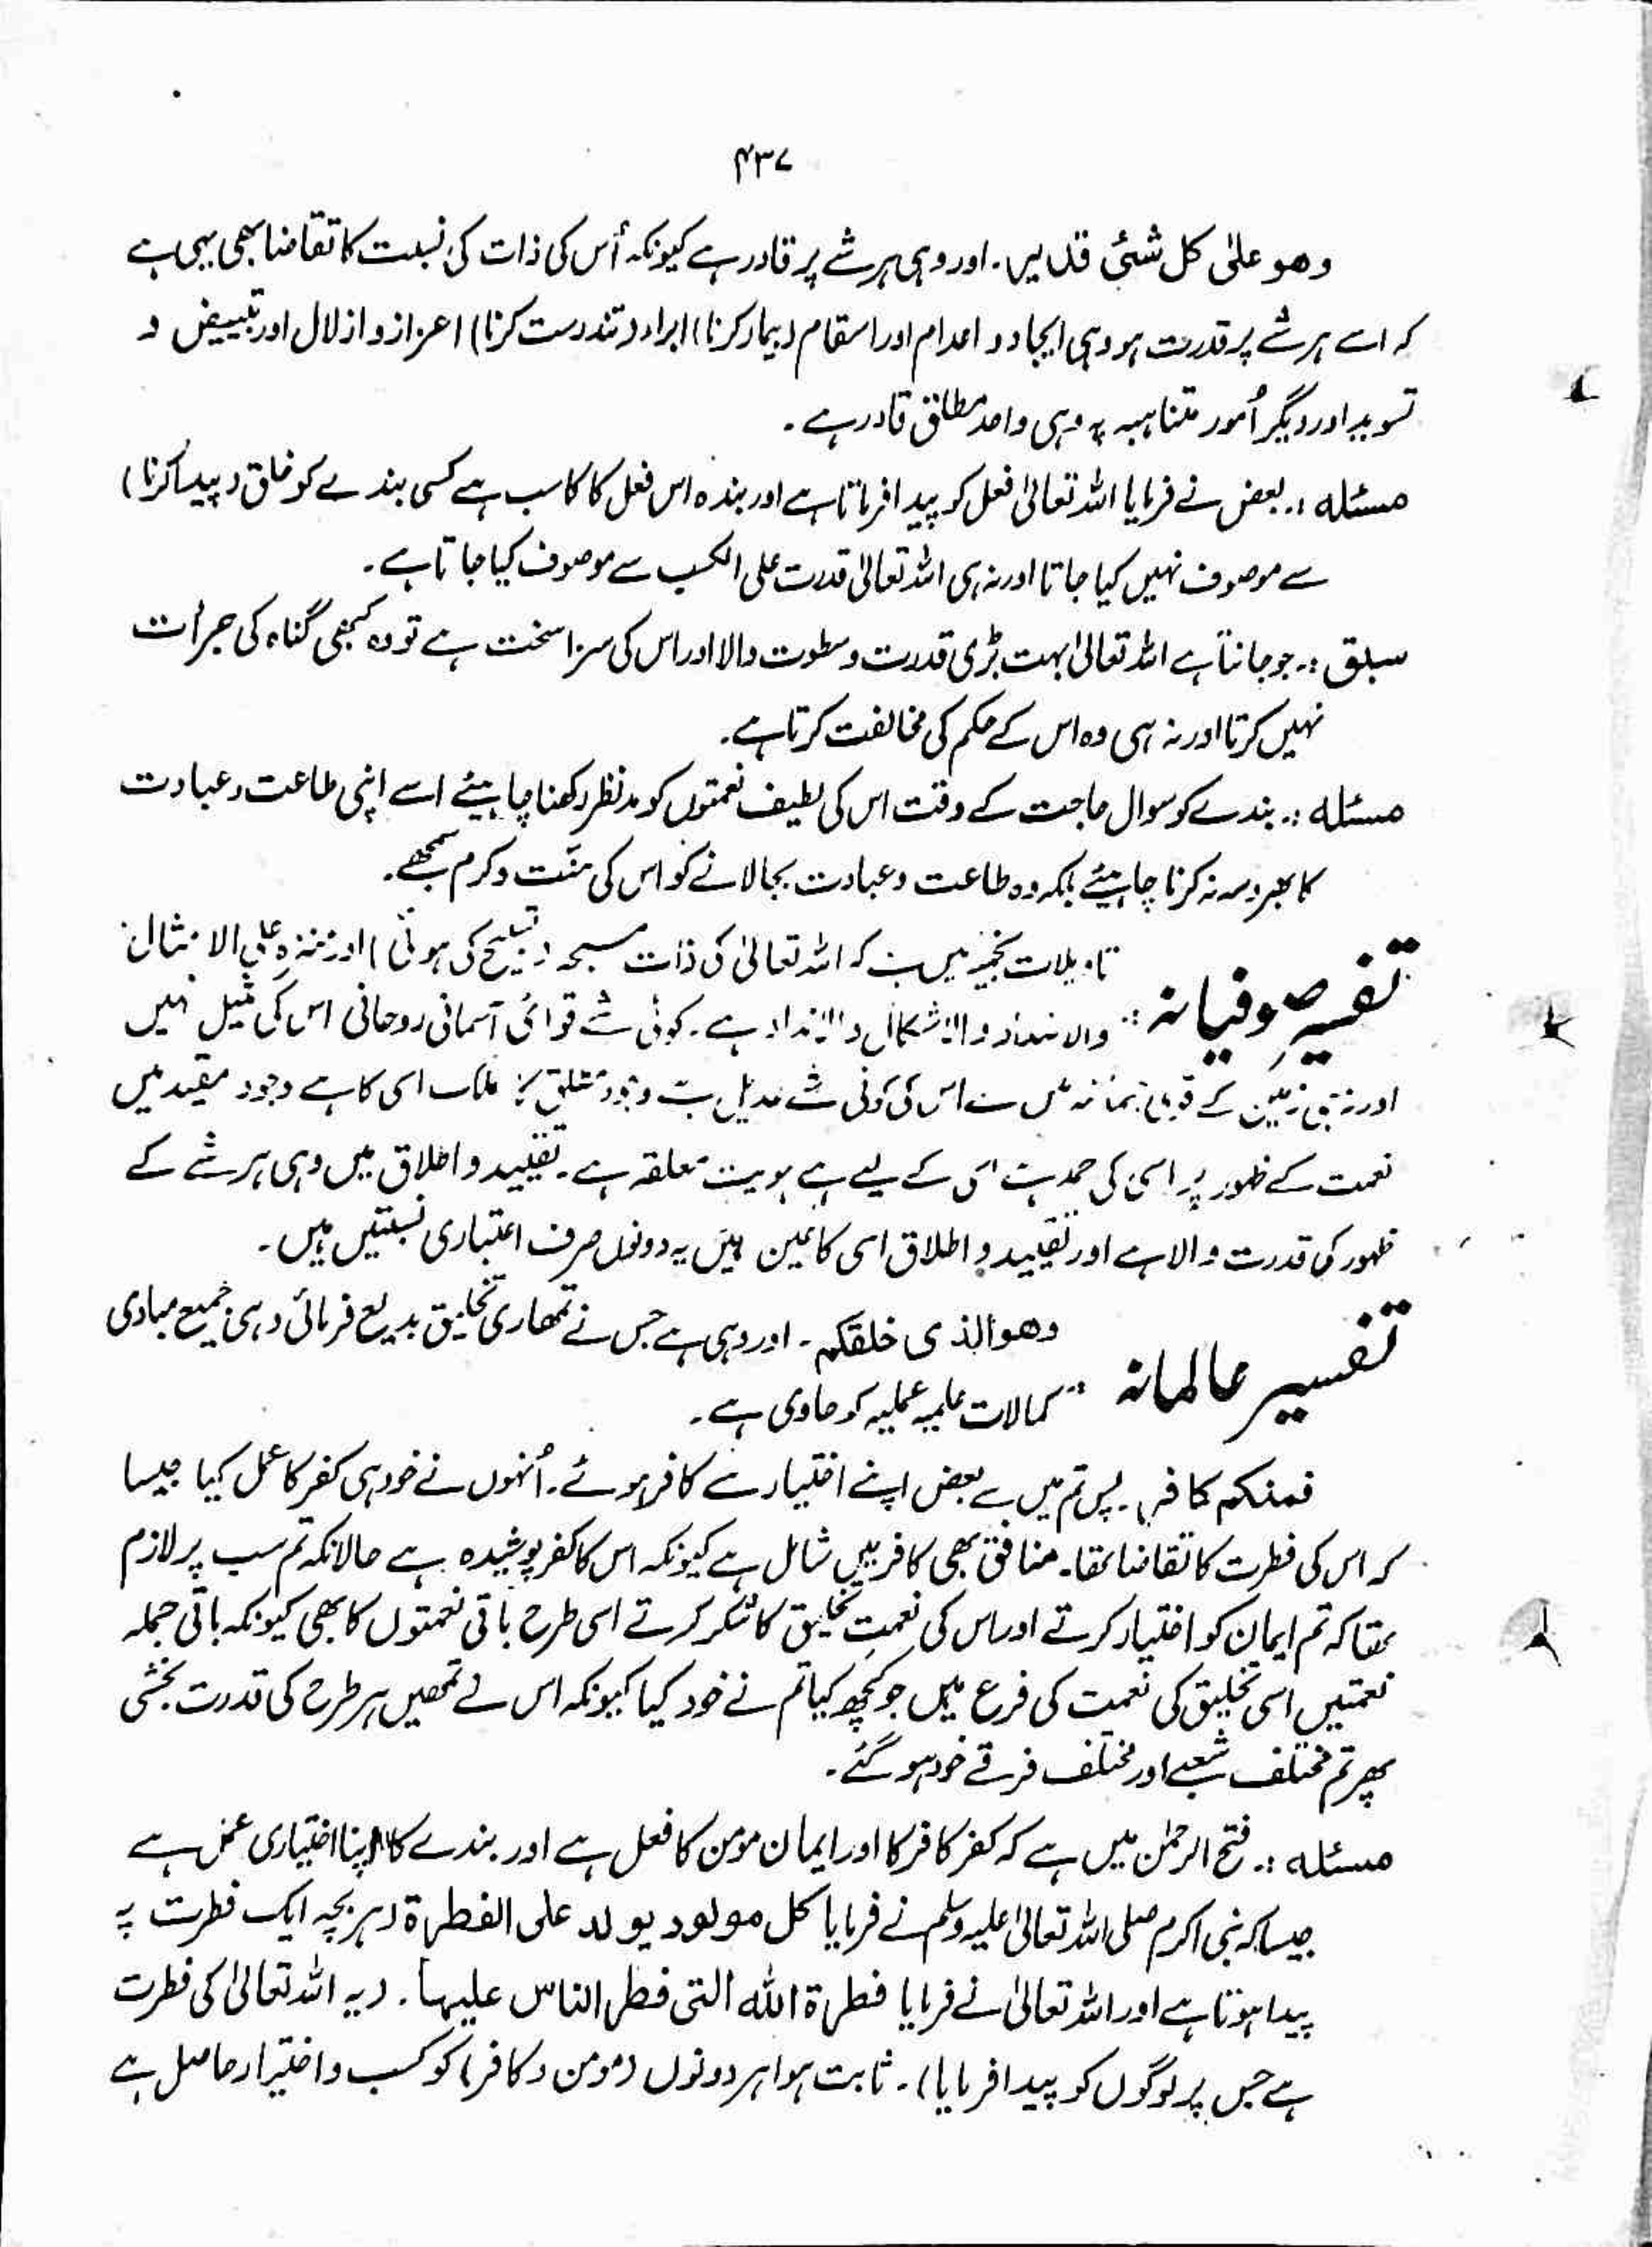 ۴۳۷
وھو علیٰ کل شئی قدیر۔ اور وہی ہر شے پر قادر ہے کیونکہ اُس کی ذات کی نسبت کا تقاضا بھی یہی ہے
کہ اسے ہر شے پر قدرت ہو وہی ایجاد و اعدام اور اسقام (بیمار کرنا) ابراء (تندرست کرنا) اعزاز و ازلال اور تبییض و
تسوید اور دیگر اُمور متناہیہ پہ وہی واحد مطلق قادر ہے۔
مسئلہ :۔ بعض نے فرمایا اللہ تعالیٰ فعل کو پیدا فرماتا ہے اور بندہ اس فعل کا کاسب ہے کسی بندے کو خالق (پیدا کرنا)
سے موصوف نہیں کیا جاتا اور نہ ہی اللہ تعالیٰ قدرت علی الکسب سے موصوف کیا جاتا ہے۔
سبق :۔ جو جانتا ہے اللہ تعالیٰ بہت بڑی قدرت و سطوت والا اور اس کی سزا سخت ہے تو وہ کبھی گناہ کی جرات
نہیں کرتا اور نہ ہی وہ اس کے حکم کی مخالفت کرتا ہے۔
مسئلہ :۔ بندے کو سوال حاجت کے وقت اس کی لطیف نعمتوں کو مدنظر رکھنا چاہیئے اسے اپنی طاعت و عبادت
کا بھروسہ نہ کرنا چاہیئے بلکہ وہ طاعت و عبادت بجا لانے کو اس کی منّت و کرم سمجھے۔
تفسیر صوفیانہ : تاویلات نجمیہ میں ہے کہ اللہ تعالیٰ کی ذات مسبحہ (تسبیح کی ہوئی) اور منزہ علی الامثال
والاضداد والاشکال والانداد ہے۔ کوئی شے قوائی آسمانی روحانی اس کی مثیل نہیں
اور نہ ہی زمین کے قوی سے اس کی کوئی شے عدیل ہے وجود مطلق کا ملک اسی کا ہے وجود مقید میں
نعمت کے ظہور پر اسی کی حمد ہے اسی کے لیے ہے ہویت مطلقہ ہے۔ تقیید و اطلاق میں وہی ہر شے کے
ظہور کی قدرت والا ہے اور تقیید و اطلاق اسی کا عین ہیں یہ دونوں صرف اعتباری نسبتیں ہیں۔
تفسیر عالمانہ : وھوالذی خلقکم۔ اور وہی ہے جس نے تمھاری تخلیق بدیع فرمائی وہی جمیع مبادی
کمالات علمیہ عملیہ کو حاوی ہے۔
فمنکم کافر۔ پس تم میں سے بعض اپنے اختیار سے کافر ہوئے۔ اُنہوں نے خود ہی کفر کا عمل کیا جیسا
کہ اس کی فطرت کا تقاضا تھا۔ منافق بھی کافر میں شامل ہے کیونکہ اس کا کفر پوشیدہ ہے حالانکہ تم سب پر لازم
تھا کہ تم ایمان کو اختیار کرتے اور اس کی نعمتِ تخلیق کا شکر کرتے اسی طرح باقی نعمتوں کا بھی کیونکہ باقی جملہ
نعمتیں اسی تخلیق کی نعمت کی فرع ہیں جو کچھ کیا تم نے خود کیا کیونکہ اس نے تمھیں ہر طرح کی قدرت بخشی
پھر تم مختلف شعبے اور مختلف فرقے خود ہو گئے۔
مسئلہ :۔ فتح الرحمٰن میں ہے کہ کفر کافر کا اور ایمان مومن کا فعل ہے اور بندے کا اپنا اختیاری عمل ہے
جیسا کہ نبی اکرم صلی اللہ تعالیٰ علیہ وسلم نے فرمایا کل مولود یولد علی الفطرۃ (ہر بچہ ایک فطرت پہ
پیدا ہوتا ہے اور اللہ تعالیٰ نے فرمایا فطرۃ اللہ التی فطر الناس علیہا۔ (یہ اللہ تعالیٰ کی فطرت
ہے جس پر لوگوں کو پیدا فرمایا)۔ ثابت ہوا ہر دونوں (مومن و کافر) کو کسب و اختیار حاصل ہے